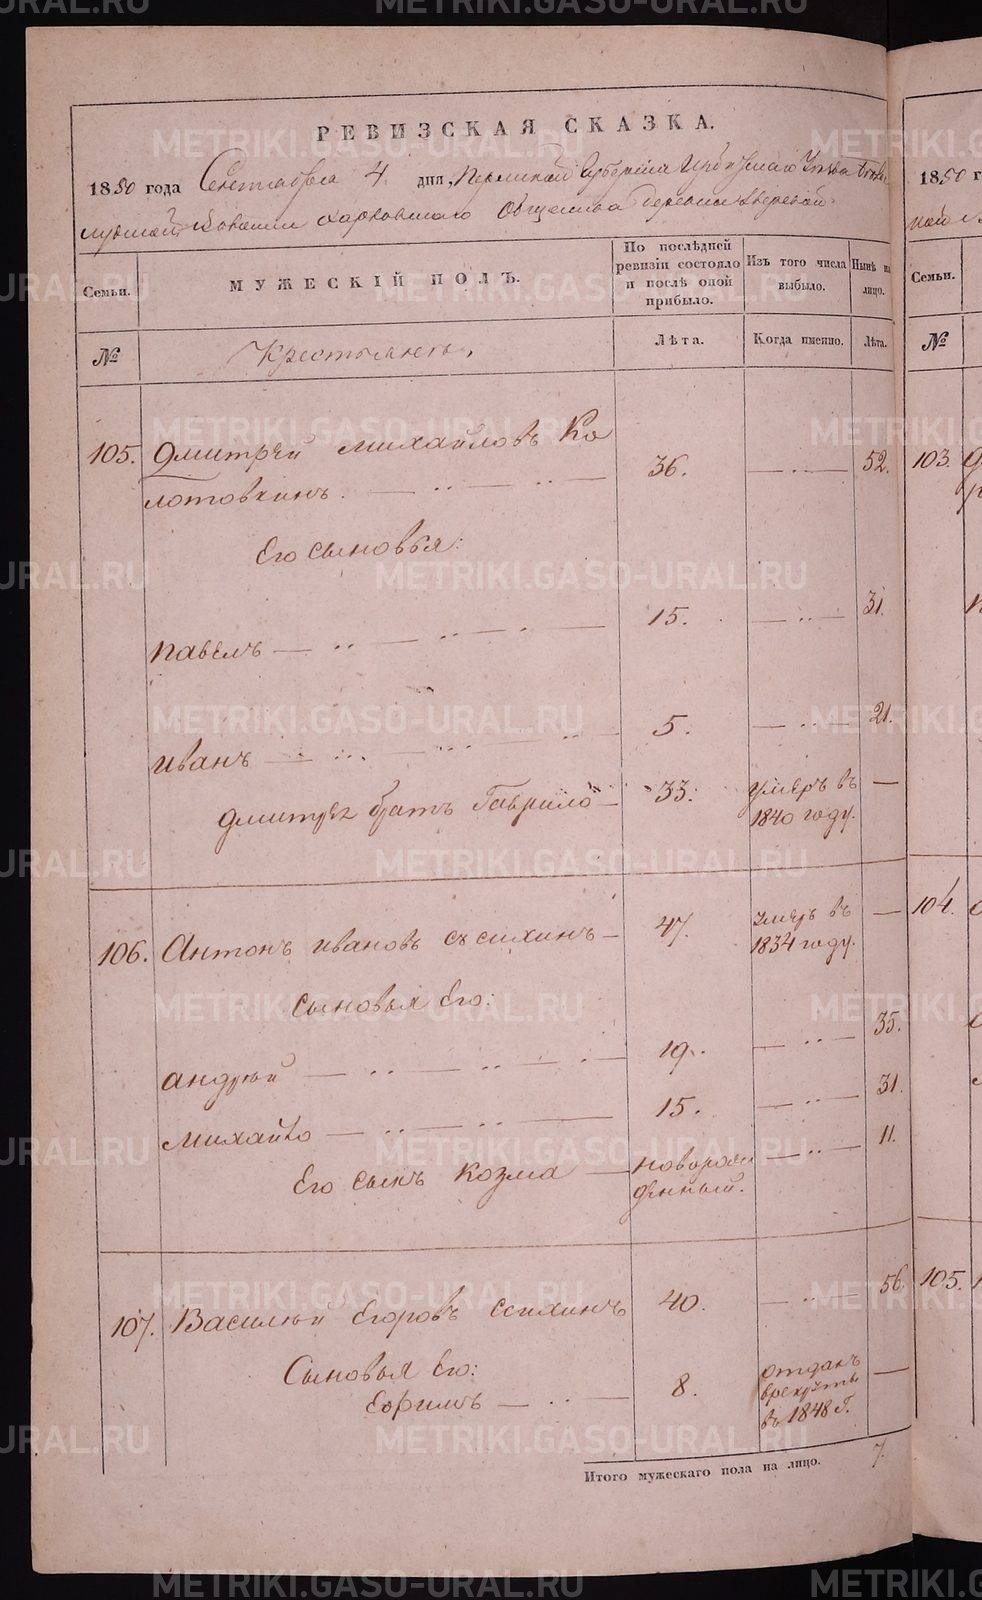 РЕВИЗСКАЯ СКАЗКА.
1850 года Сентября 4 дня, Пермской Губернии Ирбитскаго Уезда
волости Харловскаго Общества деревни
Семьи.
МУЖЕСКІЙ ПОЛЪ.
По послѣдней ревизіи состояло и послѣ оной прибыло.
Изъ того числа выбыло.
Нынѣ на лицо.
№
Крестьянъ,
Лѣта.
Когда именно.
Лѣта.
105. Дмитрей Михайловъ Ко
лотовкинъ. 36. 52.
Его сыновья:
Павелъ 15. 31.
Иванъ 5. 21.
Дмитрея братъ Гаврило 33. умеръ въ
1840 году.
106. Антонъ Ивановъ Ссихинъ 47. умеръ въ
1834 году.
Сыновья его:
Андрей 19. 35.
Михайло 15. 31.
Его сынъ Козма новорож
денный. 11.
107. Василей Егоровъ Ссихинъ 40. 56.
Сыновья его:
Ефимъ 8. отданъ
врекруты
въ 1848 г.
Итого мужескаго пола на лицо. 7.
1850 г
Семьи.
№
103.
104.
105.
METRIKI.GASO-URAL.RU